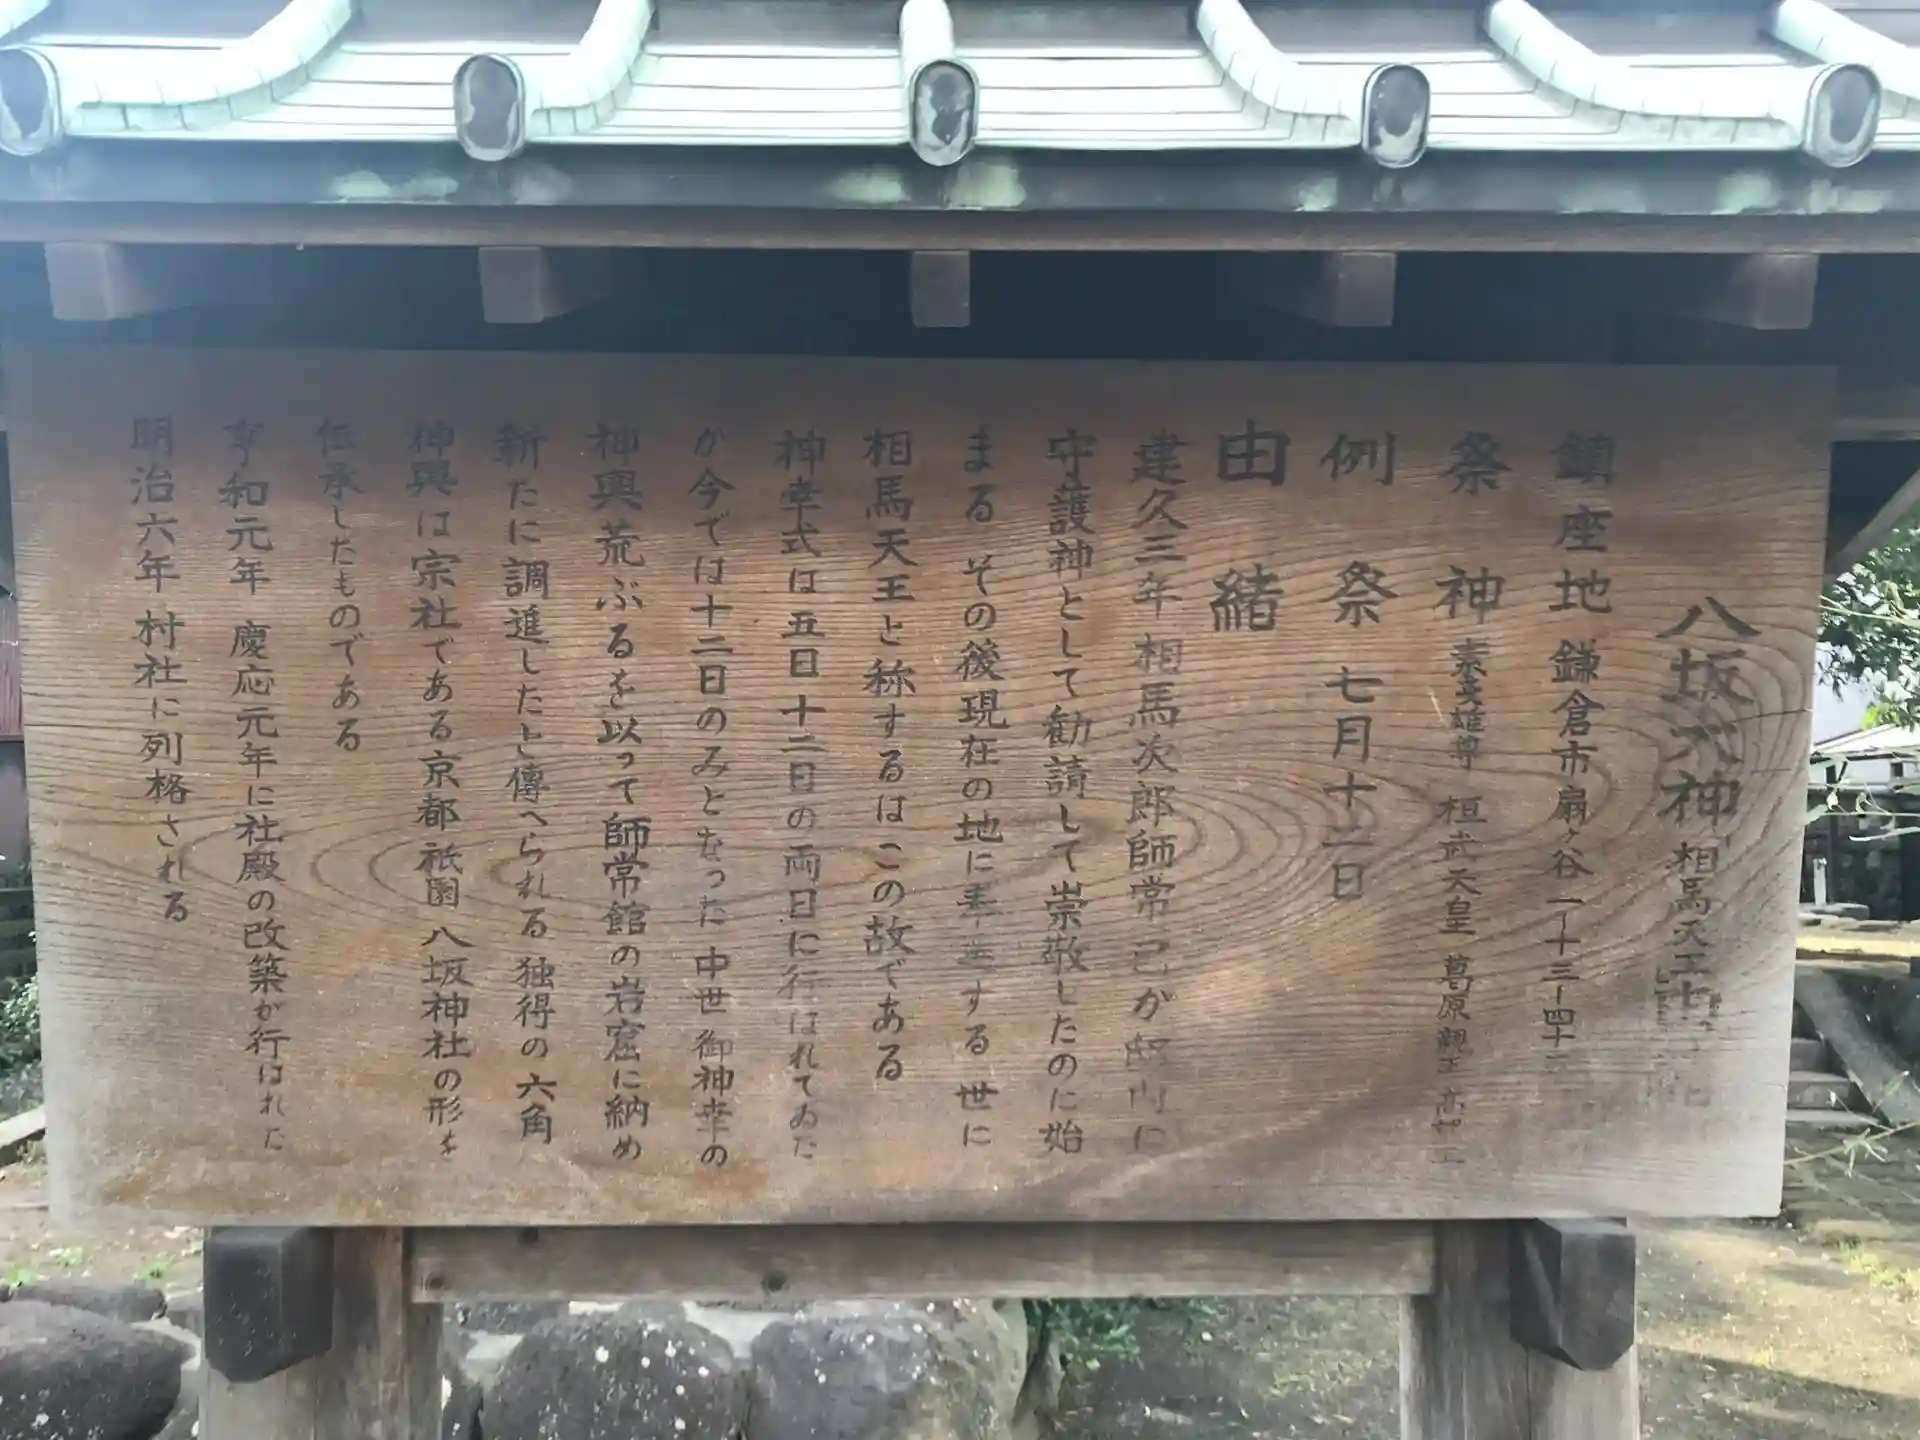 八坂大神 相馬天王
鎮座地 鎌倉市扇ヶ谷一ー十三ー四十
祭神 素戔雄尊 桓武天皇 葛原親王 高望王
例祭 七月十二日
由緒
建久三年 相馬次郎師常己が 内に
守護神として勧請して崇敬したのに始
まる その後現在の地に奉遷する 世に
相馬天王と称するはこの故である
神幸式は五日十二日の両日に行はれてゐた
が今では十二日のみとなった 中世 御神幸の
神輿荒ぶるを以って師常館の岩窟に納め
新たに調進したと傳へられる 独得の六角
神輿は宗社である京都祇園八坂神社の形を
伝承したものである
享和元年 慶応元年に社殿の改築が行はれた
明治六年 村社に列格される